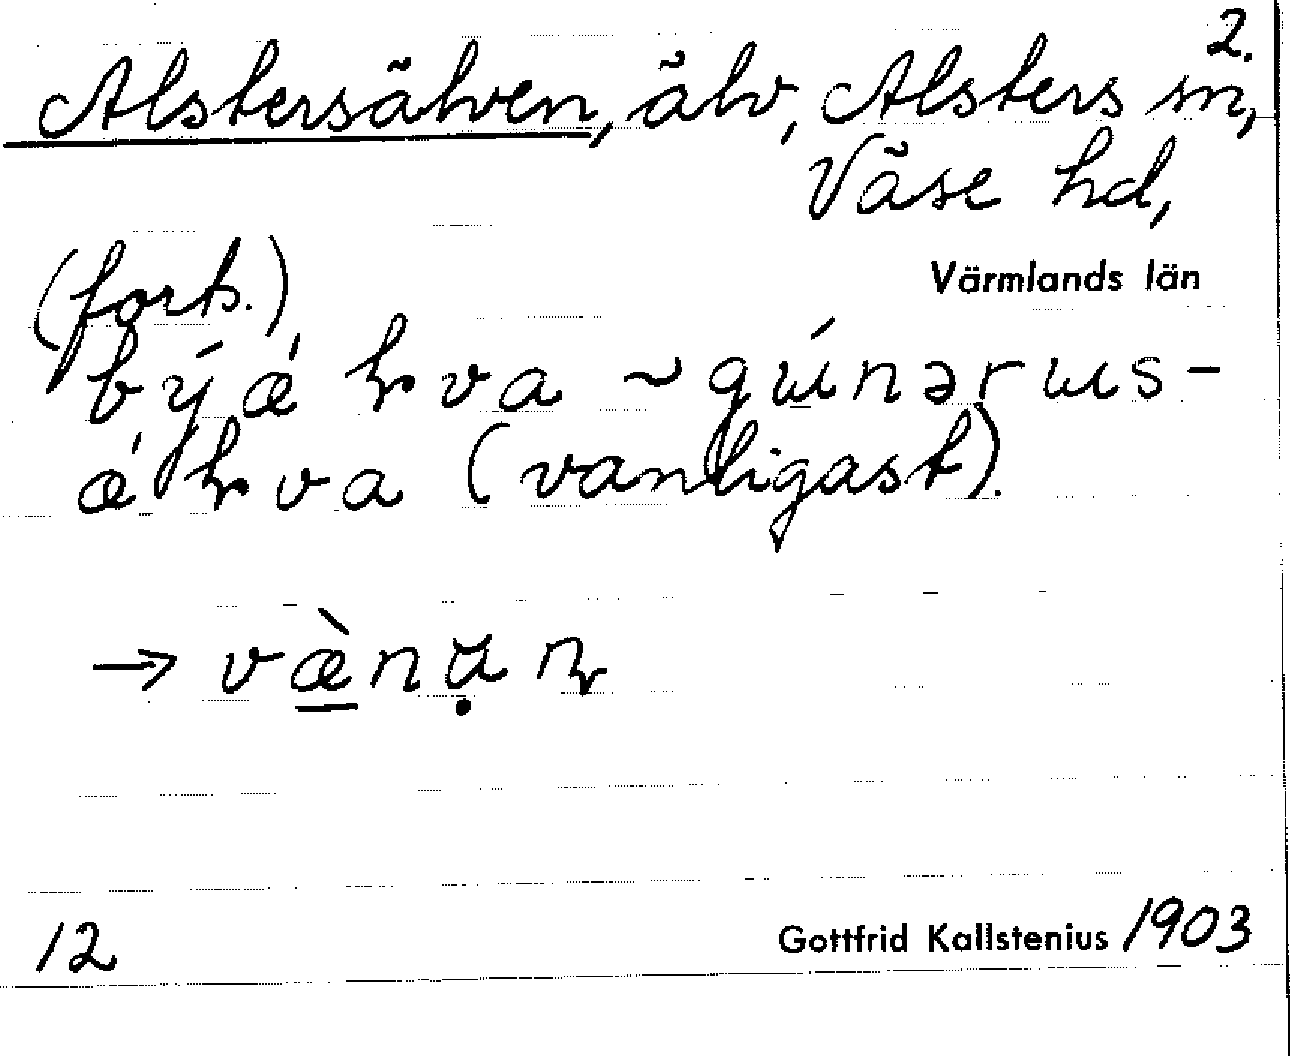 2.
Alstersälven, älv, Alsters sn,
Väse hd,
Värmlands län
(forts.)
bý ǽ ɭ v a ~ gɯ́nərɯs-
ǽ ɭ v a (vanligast).
→ væ̀nạɳ
12 Gottfrid Kallstenius 1903